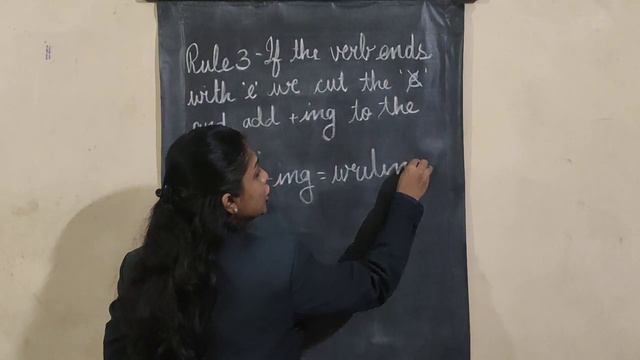 Rule 3 - If the verb ends
with 'e' we cut the 'e'
and add +ing to the
ing = writin